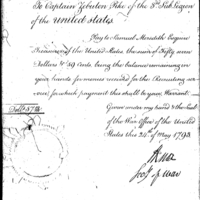 To Captain Zebulon Pike of the 3rd Sub Legion
of the United States.
Pay to Samuel Meredith Esquire
Treasurer of the United States, the sum of Fifty seven
Dollars & 59 Cents being the balance remaining in
your hands for monies received for the Recruiting ser-
vice, for which payment this shall be your Warrant.
Given under my hand & the Seal
of the War Office of the United
States this 24th of May 1793
HKnox
Secy of War